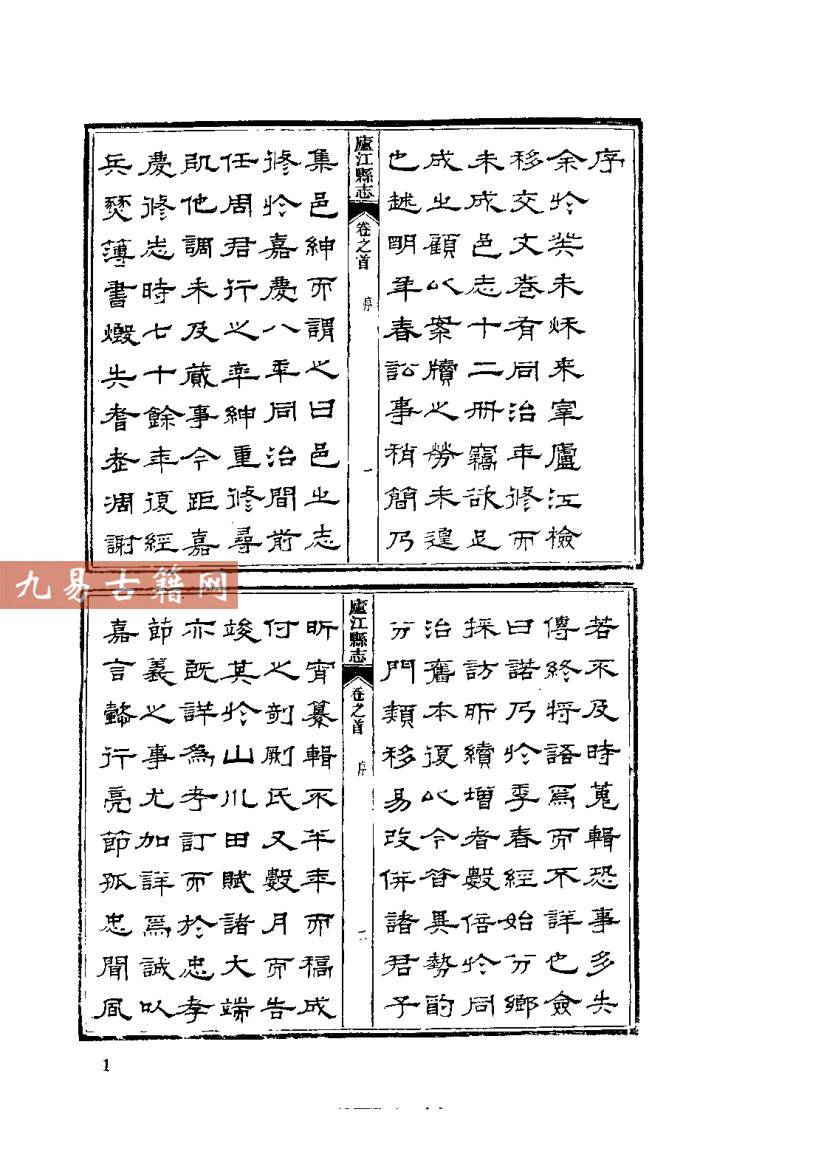 序
余於癸未秌来宰廬江檢
移交文卷有同治年修而
未成邑志十二冊竊欲足
成之顧以案牘之勞未遑
也越明年春訟事稍簡乃
廬江縣志
卷之首
序
一
集邑紳而謂之曰邑之志
修於嘉慶八年同治間前
任周君行之率紳重修尋
即他調未及蕆事今距嘉
慶修志時七十餘年復經
兵燹薄書燬失耆老凋謝
九易古籍网
若不及時蒐輯恐事多失
傳終將語焉而不詳也僉
曰諾乃於季春經始分鄉
採訪所續增者數倍於同
治舊本復以今昔異勢酌
分門類移易改併諸君子
廬江縣志
卷之首
序
二
昕宵纂輯不半年而稿成
付之剞劂氏又數月而告
竣其於山川田賦諸大端
亦既詳為考訂而於忠孝
節義之事尤加詳焉誠以
嘉言懿行亮節孤忠聞風
1